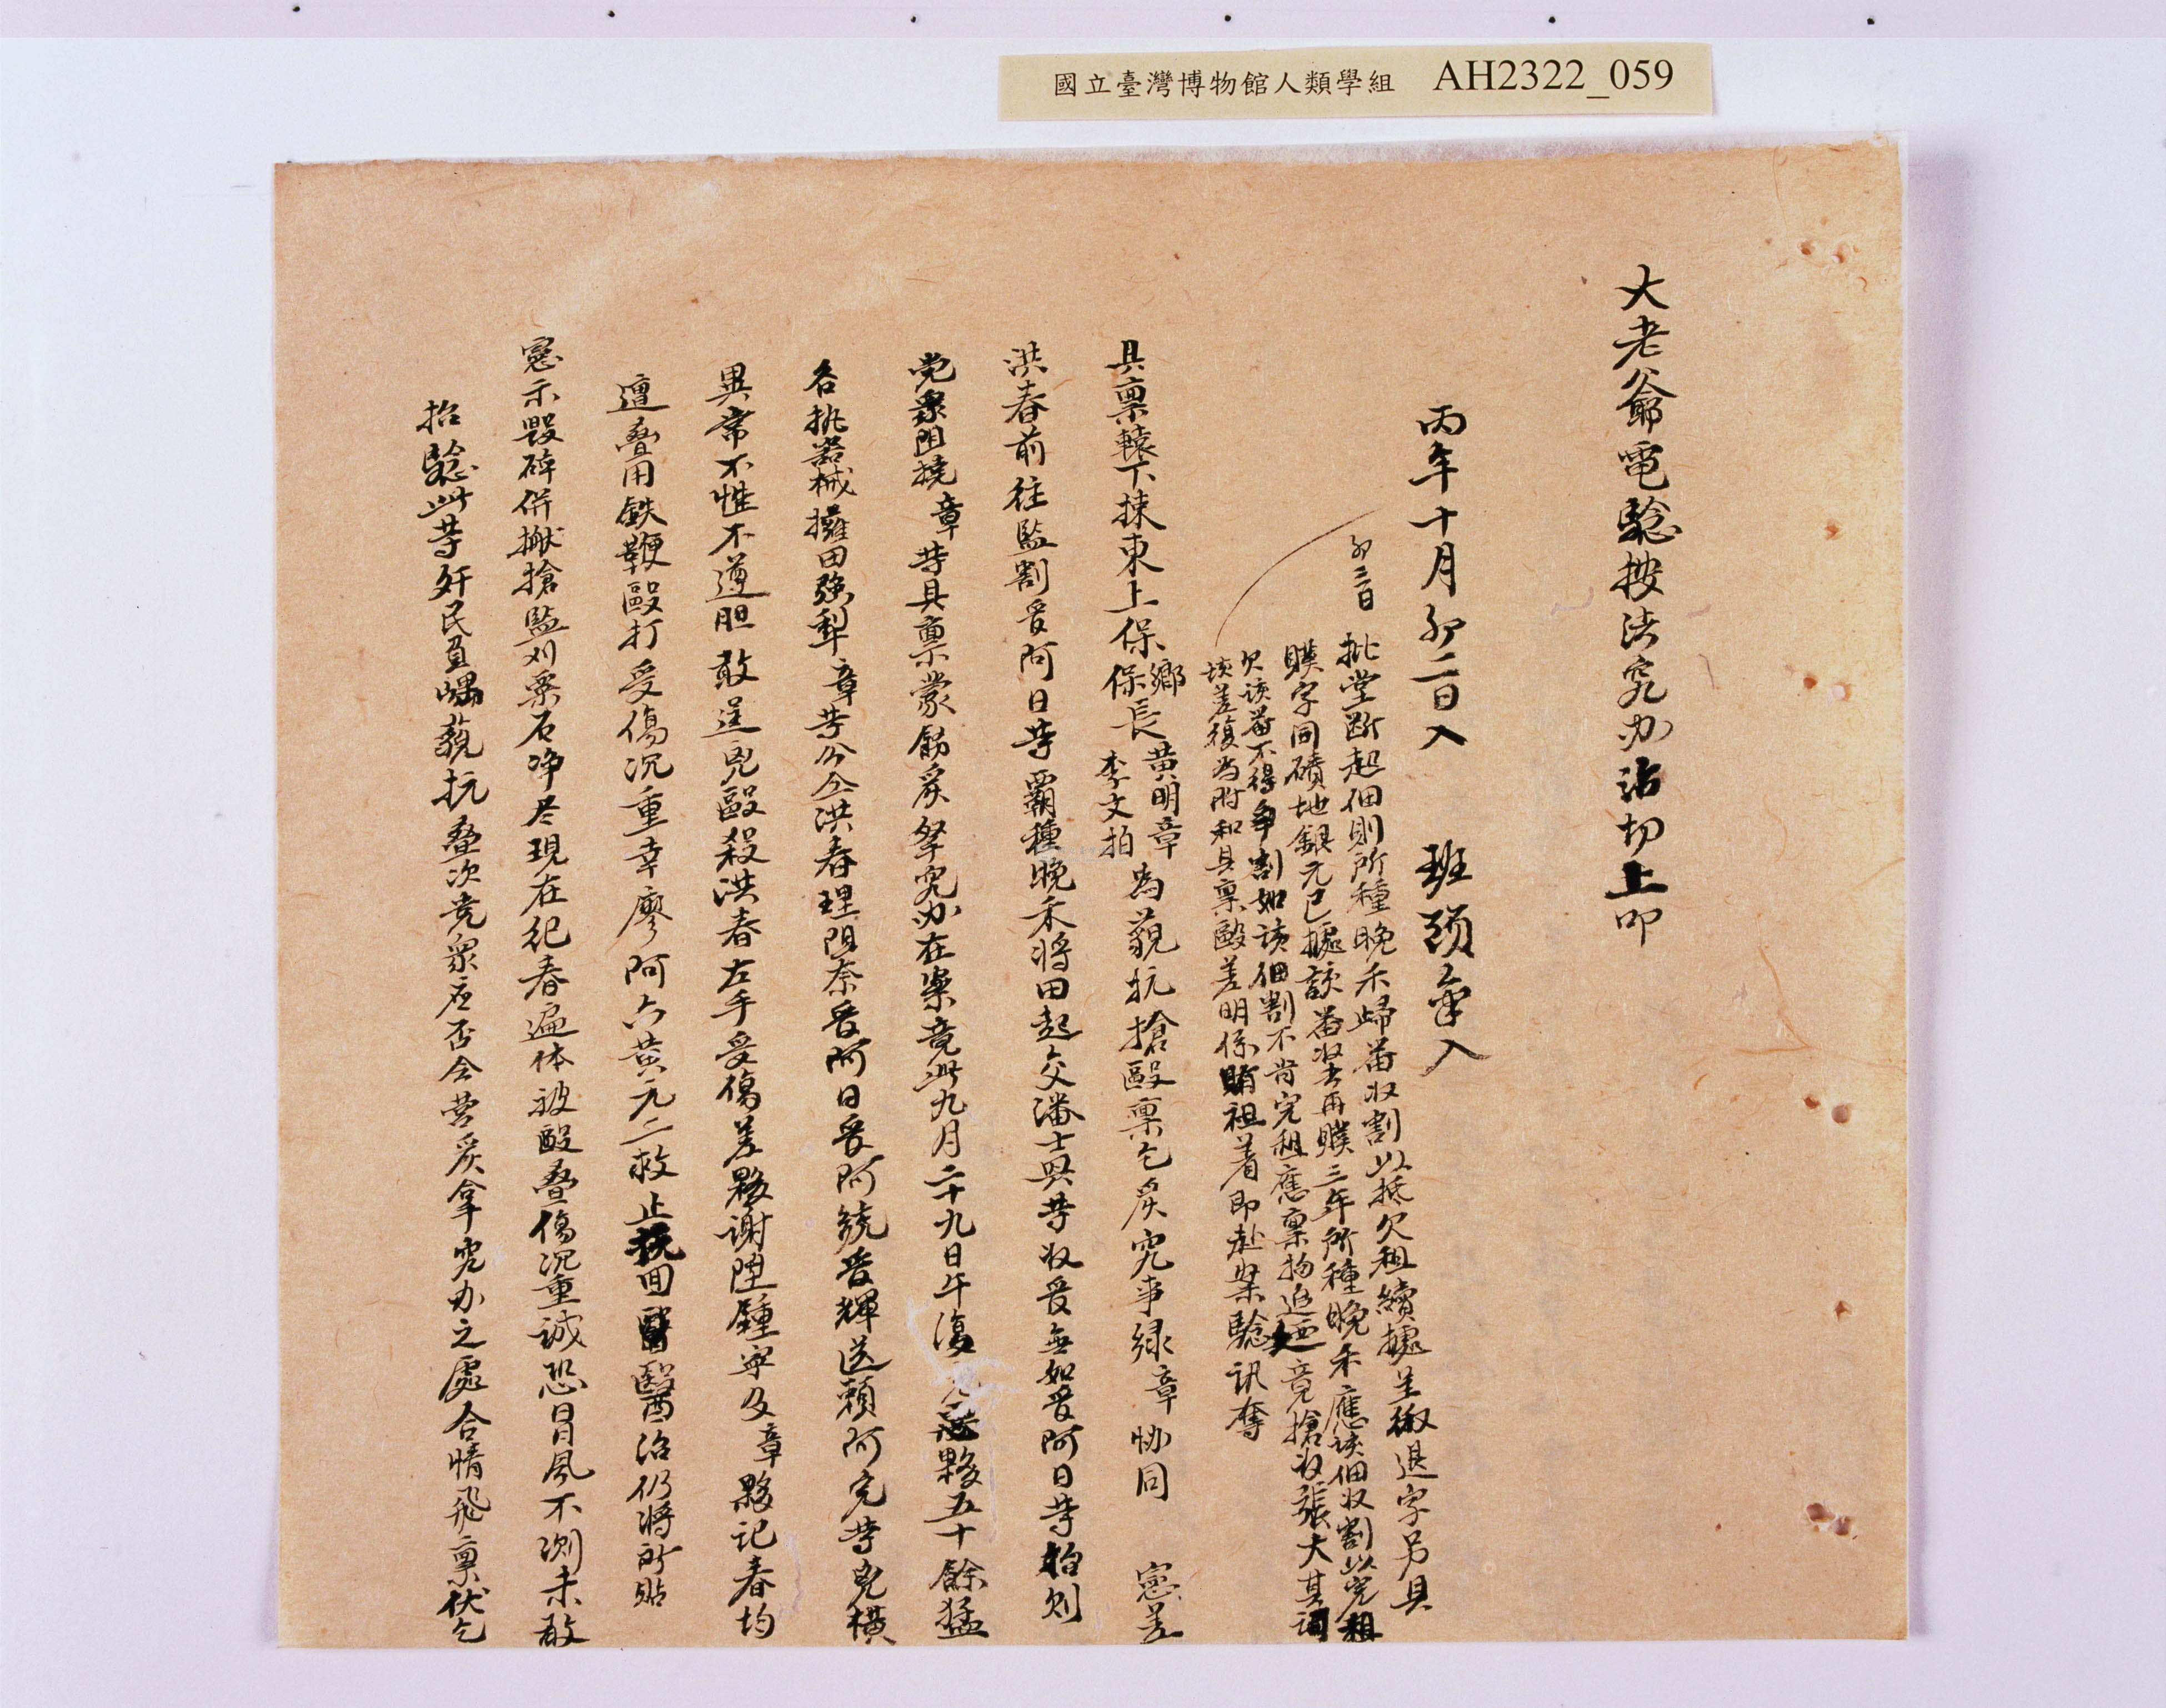 國立臺灣博物館人類學組 AH2322_059
大老爺電驗按法究办沾切上叩
丙午十月初二日入 班頭 入
初三日
批堂断起佃則所種晚禾歸番收割以抵欠租續據呈繳退字另具
贌字同磧地銀元已據該番收去再贌三年所種晚禾應该佃收割以完租
欠该番不得争割如该佃割不肯完租應禀拘追迺竟搶收張大其词
该差復为附和具禀毆差明係賄袒着即赴案驗訊奪
具禀轅下揀東上保鄉保長黄明章李文拍為藐抗搶毆禀乞炭究事緣章协同 憲差
洪春前往監割 阿日等覇種晚禾將田起交潘士興等收 無如 阿日等抬則
党衆阻撓章等具禀蒙飭炭拏究办在案竟此九月二十九日午復 夥五十餘猛
各执器械擁田强割章等仝洪春理阻奈 阿日 阿統 輝送賴阿完等兇橫
異常不惟不遵胆敢逞兇毆殺洪春左手受傷差夥謝陞鍾寧及章夥记春均
遭叠用鉄鞭毆打受傷沉重幸廖阿六黄元二救止 回 醫治仍將所貼
憲示毀碎併 搶監刈粟石净尽現在犯春遍体被毆叠傷沉重誠恐冒風不测未敢
抬驗此等奸民負嵎藐抗叠次党衆应否会营炭拿究办之處合情飛禀伏乞